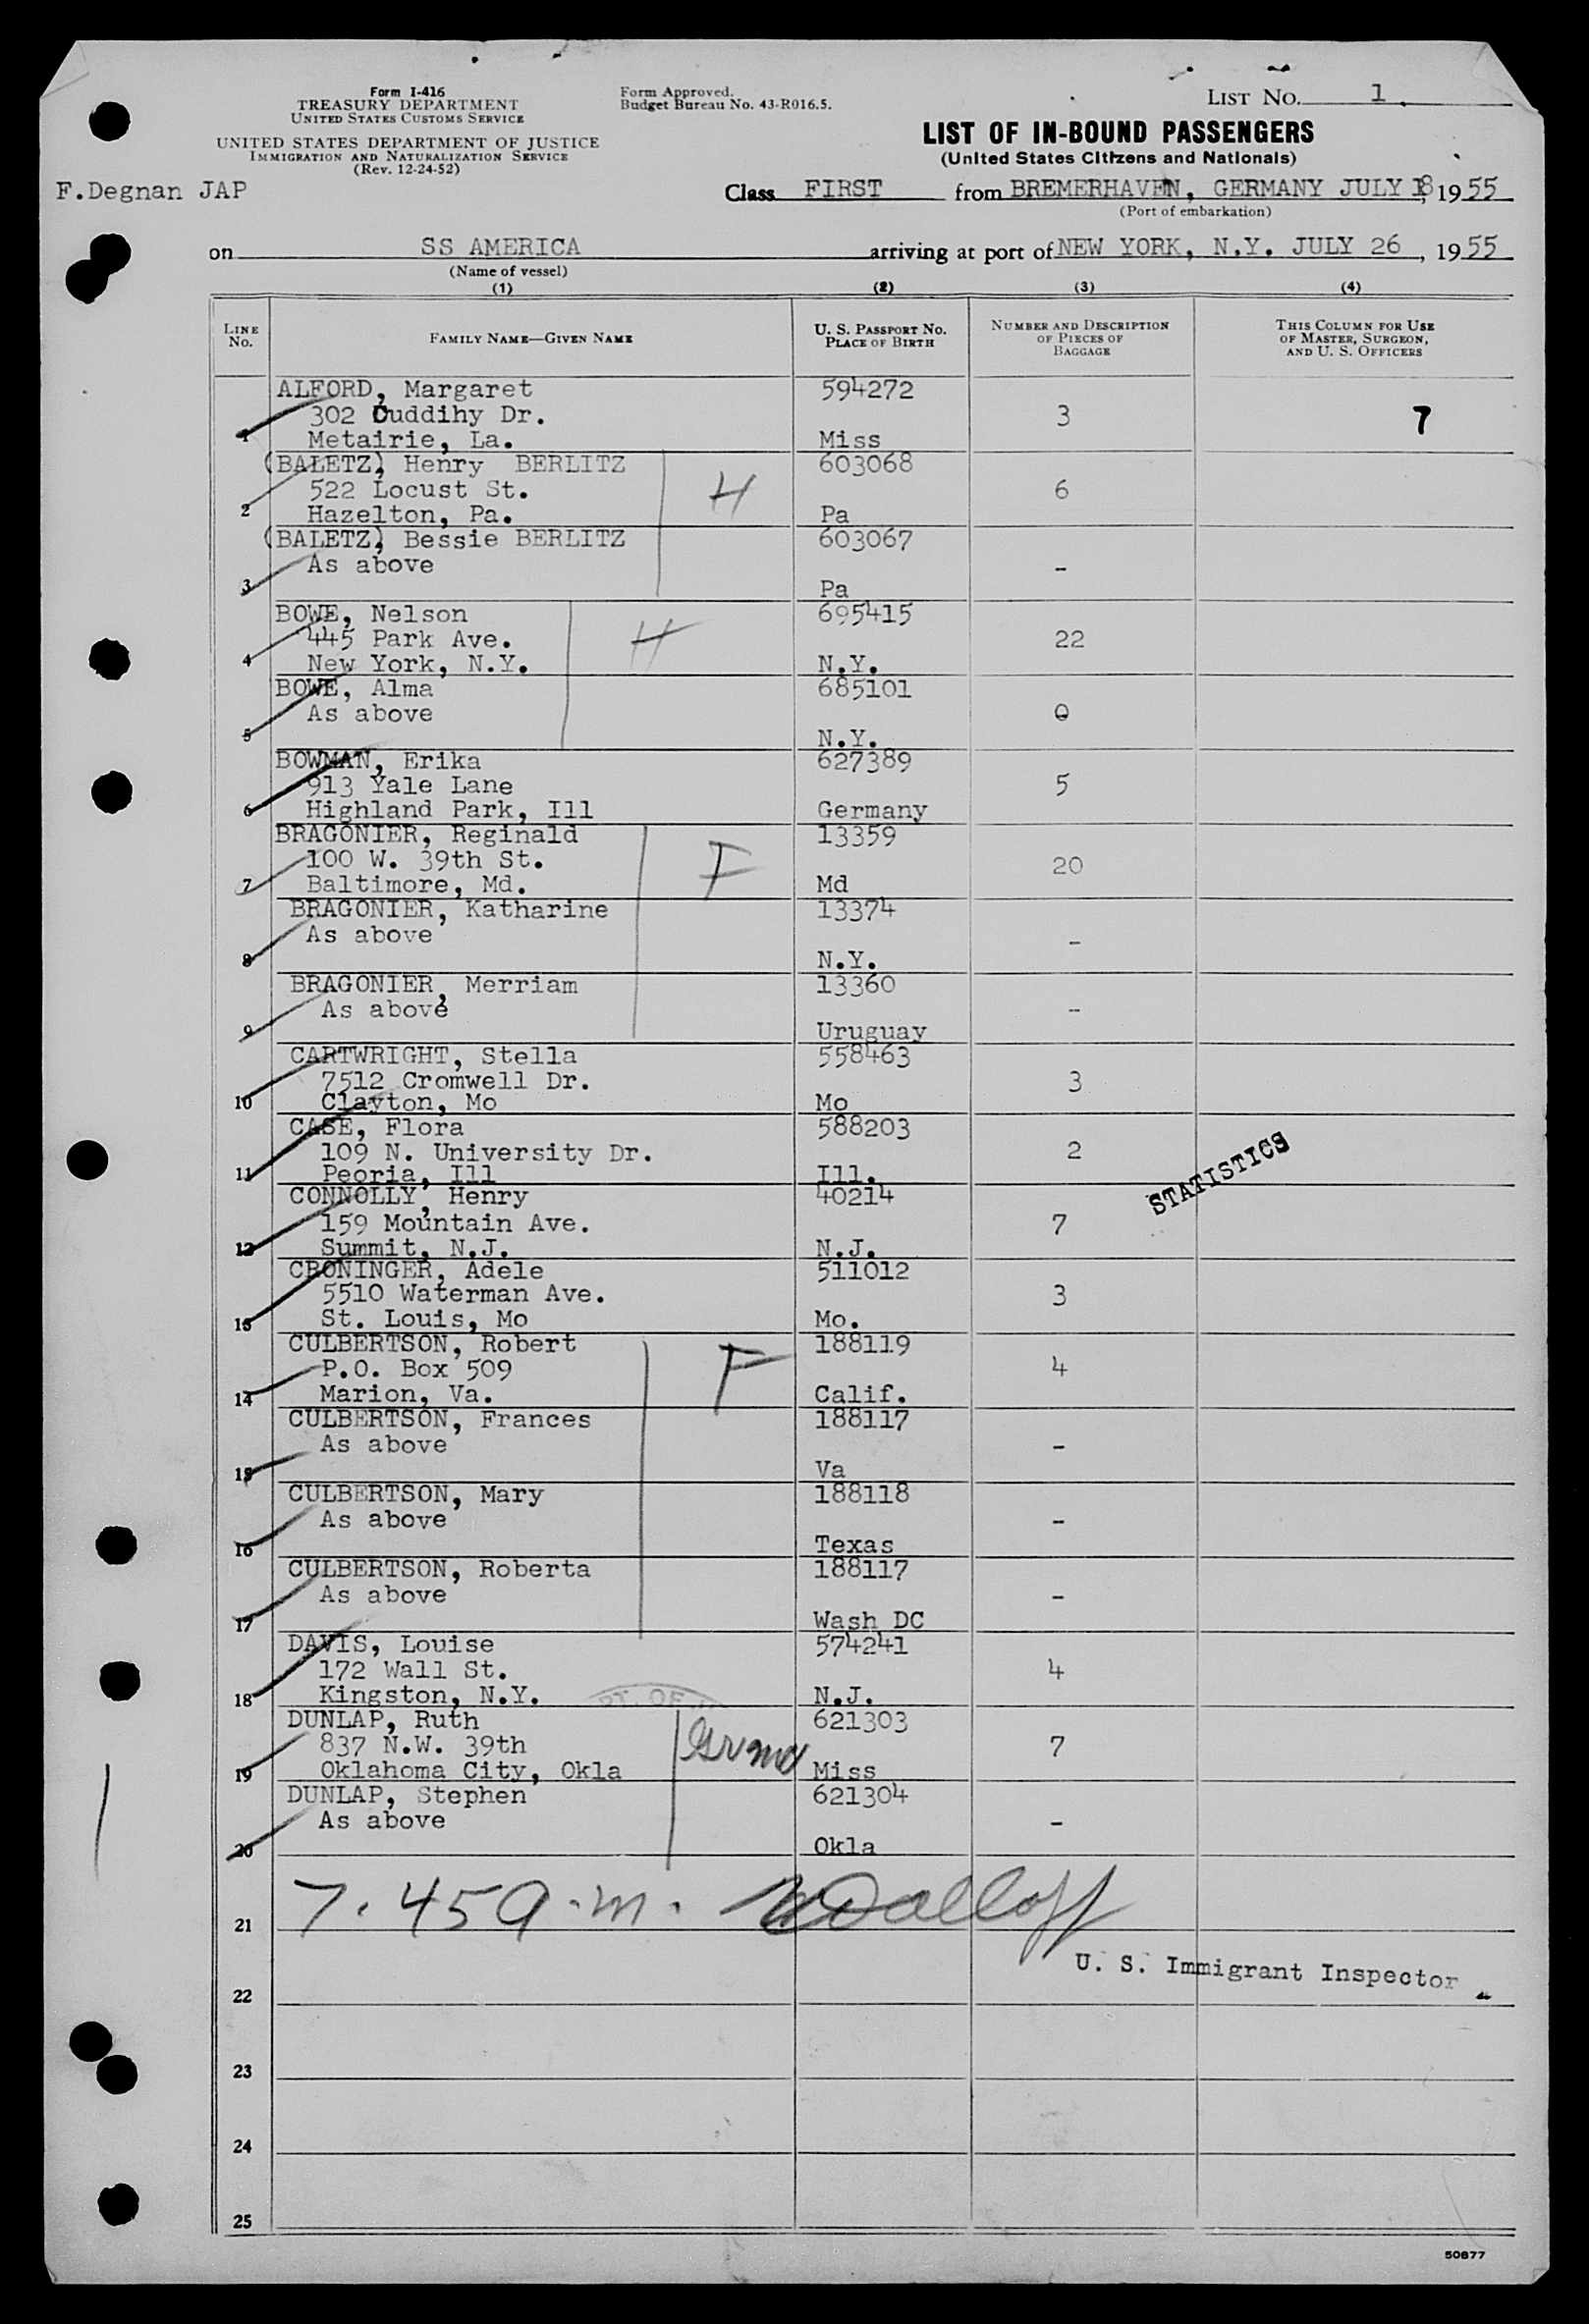 Form I-416
TREASURY DEPARTMENT
UNITED STATES CUSTOMS SERVICE
UNITED STATES DEPARTMENT OF JUSTICE
IMMIGRATION AND NATURALIZATION SERVICE
(Rev. 12-24-52)
Form Approved.
Budget Bureau No. 43-R016.5.
LIST NO. 1
LIST OF IN-BOUND PASSENGERS
(United States Citizens and Nationals)
F.Degnan JAP
Class FIRST from BREMERHAVEN, GERMANY JULY 18, 1955
(Port of embarkation)
on SS AMERICA arriving at port of NEW YORK, N.Y. JULY 26, 1955
(Name of vessel)
(1) (2) (3) (4)
LINE NO. FAMILY NAME—GIVEN NAME U. S. PASSPORT NO. PLACE OF BIRTH NUMBER AND DESCRIPTION OF PIECES OF BAGGAGE THIS COLUMN FOR USE OF MASTER, SURGEON, AND U. S. OFFICERS
ALFORD, Margaret 594272
302 Cuddihy Dr. 3 7
1 Metairie, La. Miss
(BALETZ) Henry BERLITZ 603068
522 Locust St. H 6
2 Hazelton, Pa. Pa
(BALETZ) Bessie BERLITZ 603067
As above -
3 Pa
BOWE, Nelson 695415
445 Park Ave. H 22
4 New York, N.Y. N.Y.
BOWE, Alma 685101
As above 0
5 N.Y.
BOWMAN, Erika 627389
913 Yale Lane 5
6 Highland Park, Ill Germany
BRAGONIER, Reginald 13359
100 W. 39th St. F 20
7 Baltimore, Md. Md
BRAGONIER, Katharine 13374
As above -
8 N.Y.
BRAGONIER, Merriam 13360
As above -
9 Uruguay
CARTWRIGHT, Stella 558463
7512 Cromwell Dr. 3
10 Clayton, Mo Mo
CASE, Flora 588203
109 N. University Dr. 2
11 Peoria, Ill Ill.
STATISTICS
CONNOLLY, Henry 40214
159 Mountain Ave. 7
12 Summit, N.J. N.J.
CRONINGER, Adele 511012
5510 Waterman Ave. 3
13 St. Louis, Mo Mo.
CULBERTSON, Robert 188119
P.O. Box 509 F 4
14 Marion, Va. Calif.
CULBERTSON, Frances 188117
As above -
15 Va
CULBERTSON, Mary 188118
As above -
16 Texas
CULBERTSON, Roberta 188117
As above -
17 Wash DC
DAVIS, Louise 574241
172 Wall St. 4
18 Kingston, N.Y. N.J.
DUNLAP, Ruth 621303
837 N.W. 39th 7
19 Oklahoma City, Okla Miss
DUNLAP, Stephen 621304
As above -
20 Okla
21 7.45 a.m.
U. S. Immigrant Inspector
22
23
24
25
50877